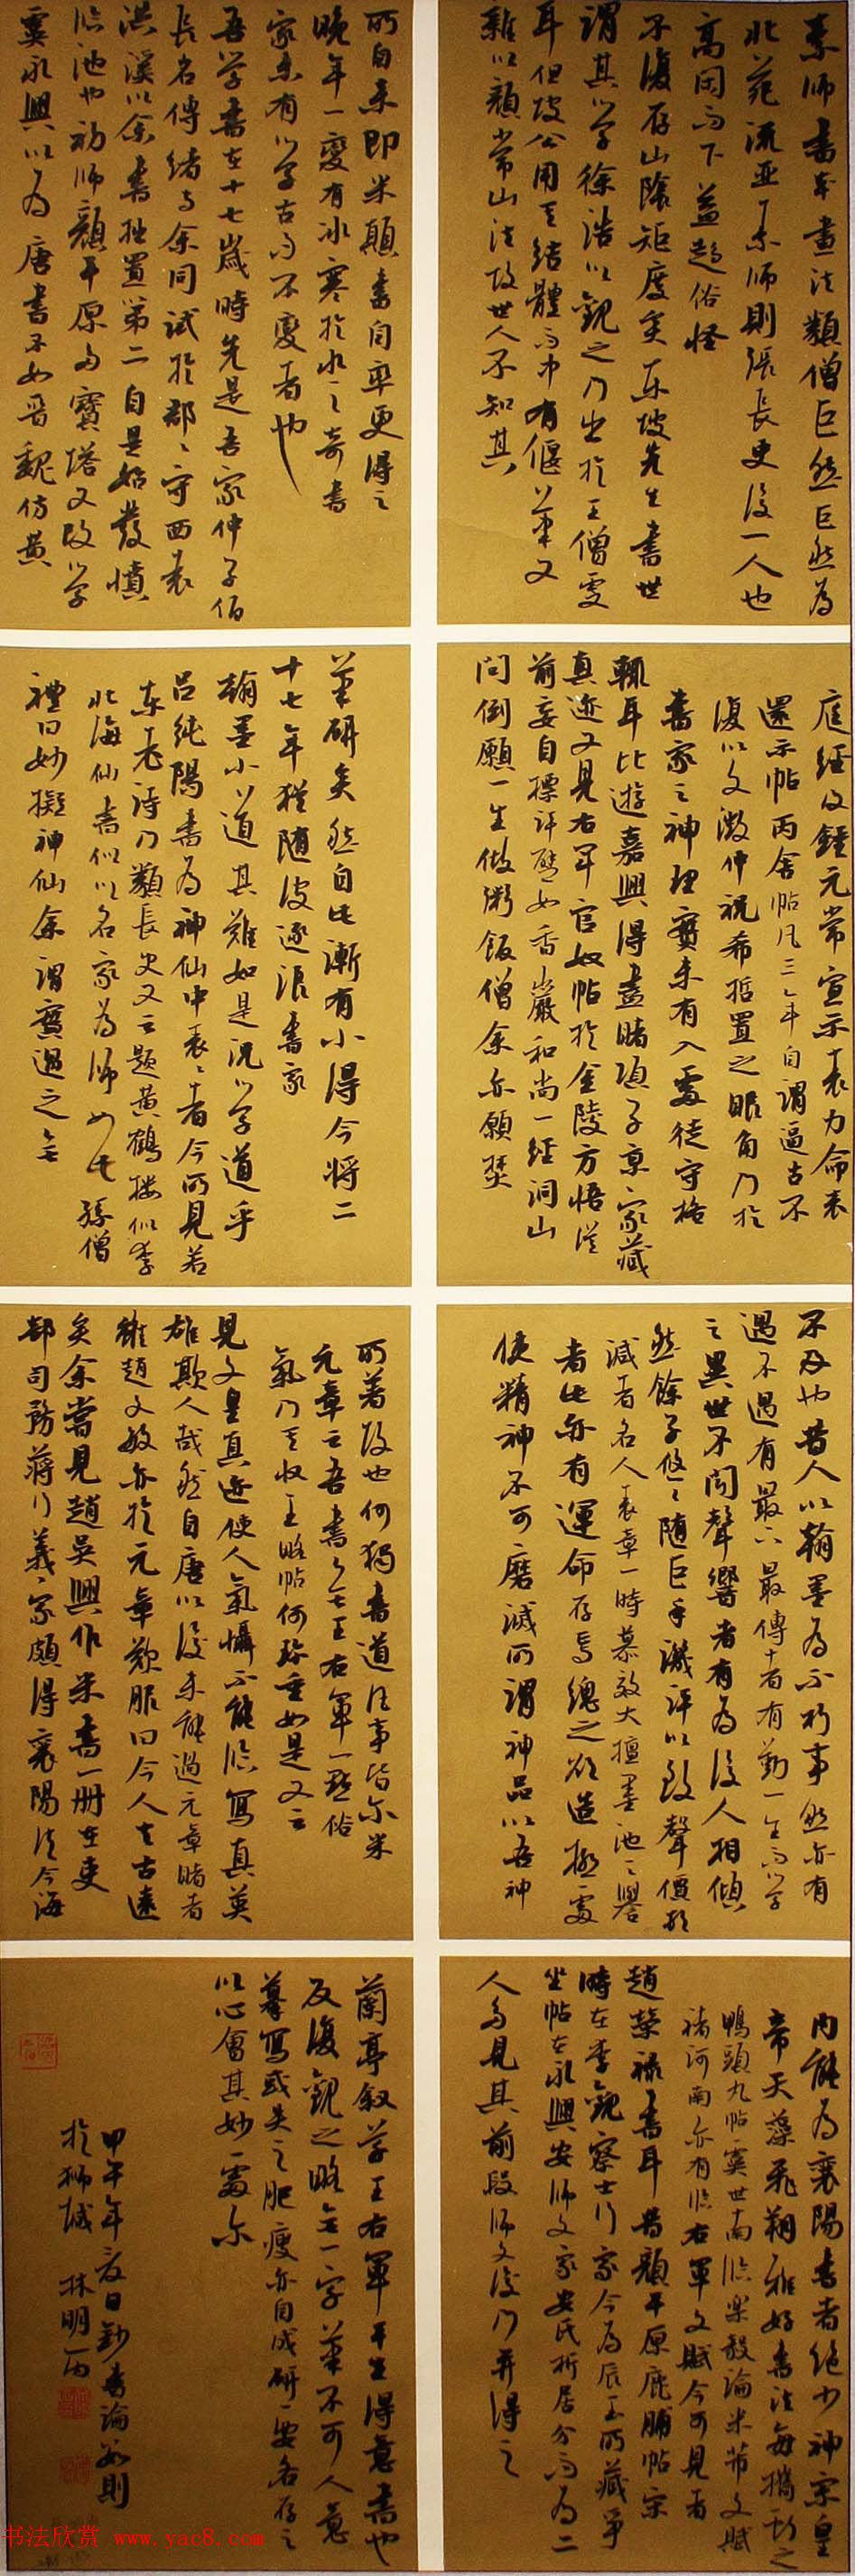 素师书本画法类僧巨然巨然为
北苑流亚素师则张长史后一人也
高闲而下益趋俗怪
不復存山陰矩度矣東坡先生書世
謂其學徐浩以觀之乃出於王僧虔
耳但坡公用其結體而中有偃筆又
雜以顏常山法故世人不知其
所自来即米顛書自率更得之
晚年一變有冰寒於水之奇書
家未有學古而不變者也
吾學書在十七歲時先是吾家仲子伯
長名傳緒與余同試於郡郡守西袁
洪溪以余書拙置第二自是始發憤
臨池也初師顏平原多寶塔又改學
虞永興以為唐書不如晉魏仿黄
庭經及鍾元常宣示表力命表
還示帖丙舍帖凡三年自謂逼古不
復以文徵仲祝希哲置之眼角乃於
書家之神理實未有入處徒守格
轍耳比遊嘉興得盡睹項子京家藏
真迹又見右軍官奴帖於金陵方悟從
前妄自標評譬如香嚴和尚一經洞山
問倒願一生做粥飯僧余亦願焚
筆研矣然自此漸有小得今將二
十七年猶随波逐浪書家
翰墨小道其難如是況學道乎
吕純陽書為神仙中表表者今所見若
東老詩乃類張長史又云題黄鶴樓似李
北海仙書似以名家為師如此孫僧
禮曰妙擬神仙余謂實過之無
不及也昔人以翰墨為不朽事然亦有
遇不遇有最下最傳者有勤一生而學
之異世不聞聲響者有為後人相傾
然餘子悠悠随巨手譏評以致聲價頓
減者名人表章一時慕效大擅墨池之譽
者此亦有運命存焉總之欲造極處
使精神不可磨滅所謂神品以吾神
所著故也何獨書道凡事皆尔米
元章云吾書無王右軍一點俗
氣乃其收王略帖何珍重如是又云
見文皇真迹使人氣懾不能臨寫真英
雄欺人哉然自唐以後未能過元章睹者
雖趙文敏亦於元章歎服曰今人去古遠
矣余嘗見趙吳興作米書一册在吏
部司務蔣行義家頗得襄陽法今海
内能為襄陽書者绝少神宗皇
帝天藻飛翔雅好書法每攜獻之
鴨頭丸帖虞世南臨樂毅論米芾文賦
褚河南亦有臨右軍文賦今可見者
趙榮禄書耳昔顏平原鹿脯帖宋
時在李觀察士行家今為辰玉所藏争
坐帖在永興安師文家安氏析居分而為二
人多見其前段師文後乃并得之
蘭亭叙學王右軍平生得意書也
反復觀之略無一字筆不可人意
摹寫或失之肥瘦亦自成妍要各存之
以心會其妙處尔
甲午年夏日鈔書論數則
於獅城 林明
书法欣赏 www.yac8.com